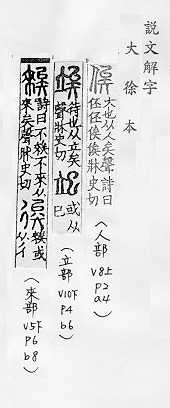 説文解字
大徐本
俟 大也从人矣聲詩曰
伾伾俟俟牀史切
(人部 V8上 P2 a4)
竢 待也从立矣
聲牀史切
或从
巳
(立部 V10下 P4 b6)
詩曰不𥏳不來从
來矣聲牀史切
𥏳或
从彳
(來部 V5下 P6 b8)